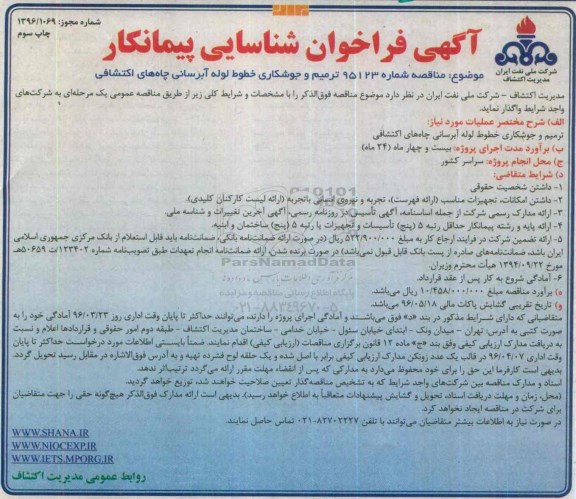 شماره مجوز: ۱۳۹۶/۱۰۶۹
چاپ سوم
آگهی فراخوان شناسایی پیمانکار
شرکت ملی نفت ایران
مدیریت اکتشاف
موضوع: مناقصه شماره ۹۵۱۲۳ ترمیم و جوشکاری خطوط لوله آبرسانی چاه‌های اکتشافی
مدیریت اکتشاف - شرکت ملی نفت ایران در نظر دارد موضوع مناقصه فوق‌الذکر را با مشخصات و شرایط کلی زیر از طریق مناقصه عمومی یک مرحله‌ای به شرکت‌های
واجد شرایط واگذار نماید.
الف) شرح مختصر عملیات مورد نیاز:
ترمیم و جوشکاری خطوط لوله آبرسانی چاه‌های اکتشافی
ب) برآورد مدت اجرای پروژه: بیست و چهار ماه (۲۴ ماه)
ج) محل انجام پروژه: سراسر کشور
د) شرایط متقاضی:
۱- داشتن شخصیت حقوقی
۲- داشتن امکانات، تجهیزات مناسب (ارائه فهرست)، تجربه و نیروی انسانی باتجربه (ارائه لیست کارکنان کلیدی).
۳- ارائه مدارک رسمی شرکت از جمله اساسنامه، آگهی تأسیس در روزنامه رسمی، آگهی آخرین تغییرات و شناسه ملی.
۴- ارائه پایه و رشته پیمانکار حداقل رتبه ۵ (پنج) تأسیسات و تجهیزات یا رتبه ۵ (پنج) ساختمان و ابنیه.
۵- ارائه تضمین شرکت در فرایند ارجاع کار به مبلغ ۵۲۲/۹۰۰/۰۰۰ ریال (در صورت ارائه ضمانت‌نامه بانکی، ضمانت‌نامه باید قابل استعلام از بانک مرکزی جمهوری اسلامی
ایران باشد، ضمانت‌نامه‌های صادره از پست بانک قابل قبول نمی‌باشد) در صورت برنده شدن، ارائه ضمانت‌نامه انجام تعهدات طبق تصویب‌نامه شماره ۱۲۳۴۰۲/ت ۵۰۶۵۹هـ
مورخ ۱۳۹۴/۰۹/۲۲ هیأت محترم وزیران
۶- آمادگی شروع به کار پس از عقد قرارداد.
ه) برآورد مناقصه مبلغ ۱۰/۴۵۸/۰۰۰/۰۰۰ ریال می‌باشد.
و) تاریخ تقریبی گشایش پاکات مالی ۹۶/۰۵/۱۸ می‌باشد.
متقاضیانی که دارای شرایط مذکور در بند «د» فوق می‌باشند و آمادگی اجرای پروژه را دارند، می‌توانند حداکثر تا پایان وقت اداری روز ۹۶/۰۳/۲۳ آمادگی خود را به
صورت کتبی به آدرس: تهران - میدان ونک - ابتدای خیابان سئول - خیابان خدامی - ساختمان مدیریت اکتشاف - طبقه دوم امور حقوقی و قراردادها اعلام و نسبت
به دریافت مدارک ارزیابی کیفی وفق بند «ج» ماده ۱۲ قانون برگزاری مناقصات (ارزیابی کیفی) اقدام نمایند. ضمناً بایستی اطلاعات مورد درخواست حداکثر تا پایان
وقت اداری ۹۶/۰۴/۰۷ در قالب یک عدد زونکن مدارک ارزیابی کیفی برابر با اصل شده و یک حلقه لوح فشرده تهیه و به آدرس فوق‌الاشاره در مقابل رسید تحویل گردد.
بدیهی است کارفرما این حق را برای خود محفوظ می‌دارد به مدارکی که پس از انقضاء مهلت مقرر ارائه می‌گردد ترتیب‌اثر ندهد.
اسناد و مدارک مناقصه بین شرکت‌های واجد شرایط که به تشخیص مناقصه‌گذار تعیین صلاحیت خواهند شد، توزیع خواهد گردید.
(محل، زمان و مهلت دریافت اسناد، تحویل و گشایش پیشنهادات متعاقباً به اطلاع خواهد رسید). بدیهی است ارائه مدارک فوق‌الذکر هیچ‌گونه حقی را جهت متقاضیان
برای شرکت در مناقصه ایجاد نخواهد کرد
در صورت نیاز به اطلاعات بیشتر متقاضیان می‌توانند با تلفن ۸۲۷۰۲۲۲۷-۰۲۱ تماس حاصل نمایند.
WWW.SHANA.IR
WWW.NIOCEXP.IR
WWW.IETS.MPORG.IR
روابط عمومی مدیریت اکتشاف
ParsNamadData